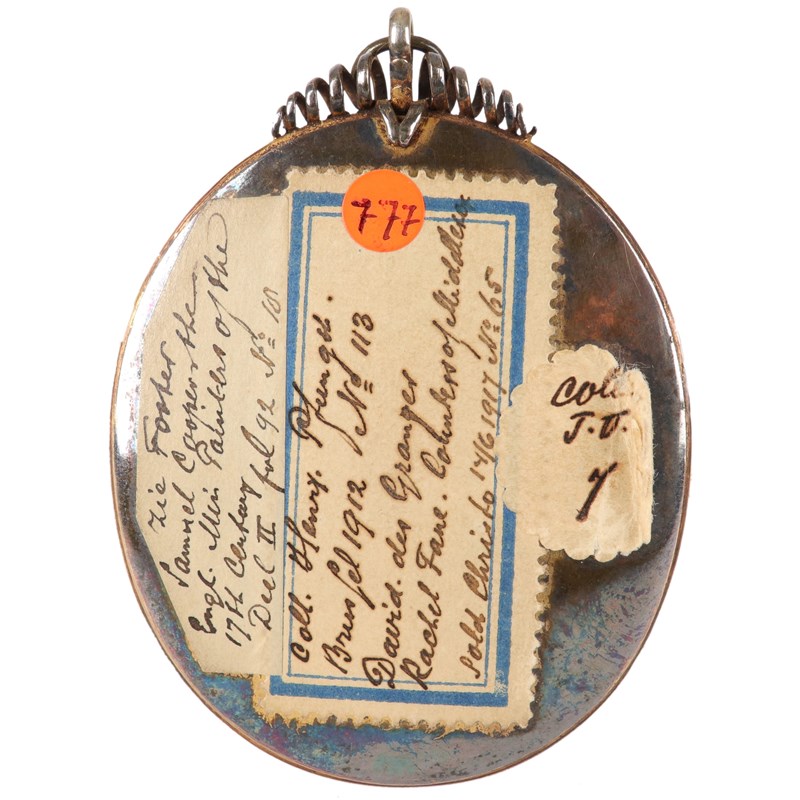 777
zie Foster
Samuel Cooper & the
Engl. Min Painters of the
17th Century
Deel II fol 92 No 101
Coll. Henry. Pfungst.
Brussel 1912 No 113
David. des Granges
Rachel Fane. Countess of Middlesex
Sold Christ 14/6 1917 No 65
Coll.
J.O.
7